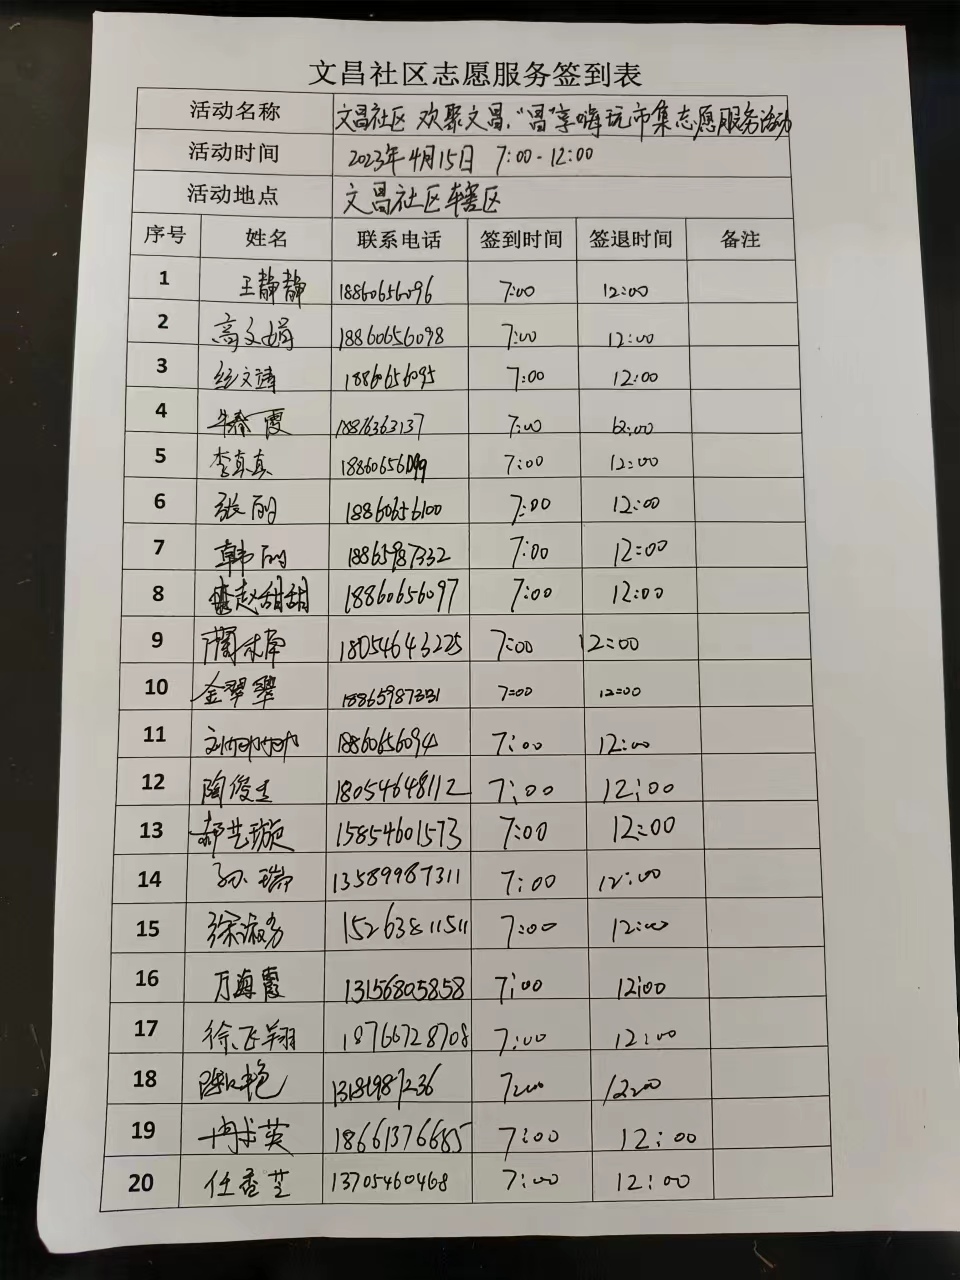 文昌社区志愿服务签到表
活动名称 文昌社区 欢聚文昌,"昌"享嗨玩市集志愿服务活动
活动时间 2023年4月15日 7:00-12:00
活动地点 文昌社区辖区
序号 姓名 联系电话 签到时间 签退时间 备注
1 王静静 18860656096 7:00 12:00
2 高文娟 18860656098 7:00 12:00
3 18860656095 7:00 12:00
4 7:00 12:00
5 李真真 18860656099 7:00 12:00
6 张丽 18860656100 7:00 12:00
7 韩丽 18865987332 7:00 12:00
8 赵甜甜 18860656097 7:00 12:00
9 18054643225 7:00 12:00
10 金翠翠 18865987331 7:00 12:00
11 18860656094 7:00 12:00
12 陶俊生 18054648112 7:00 12:00
13 郝艺璇 15854601573 7:00 12:00
14 孙瑞 13589987311 7:00 12:00
15 徐淑芳 15263811511 7:00 12:00
16 万海霞 13156805858 7:00 12:00
17 徐飞翔 18766728708 7:00 12:00
18 13181987236 7:00 12:00
19 18661376685 7:00 12:00
20 任香芝 13705460468 7:00 12:00